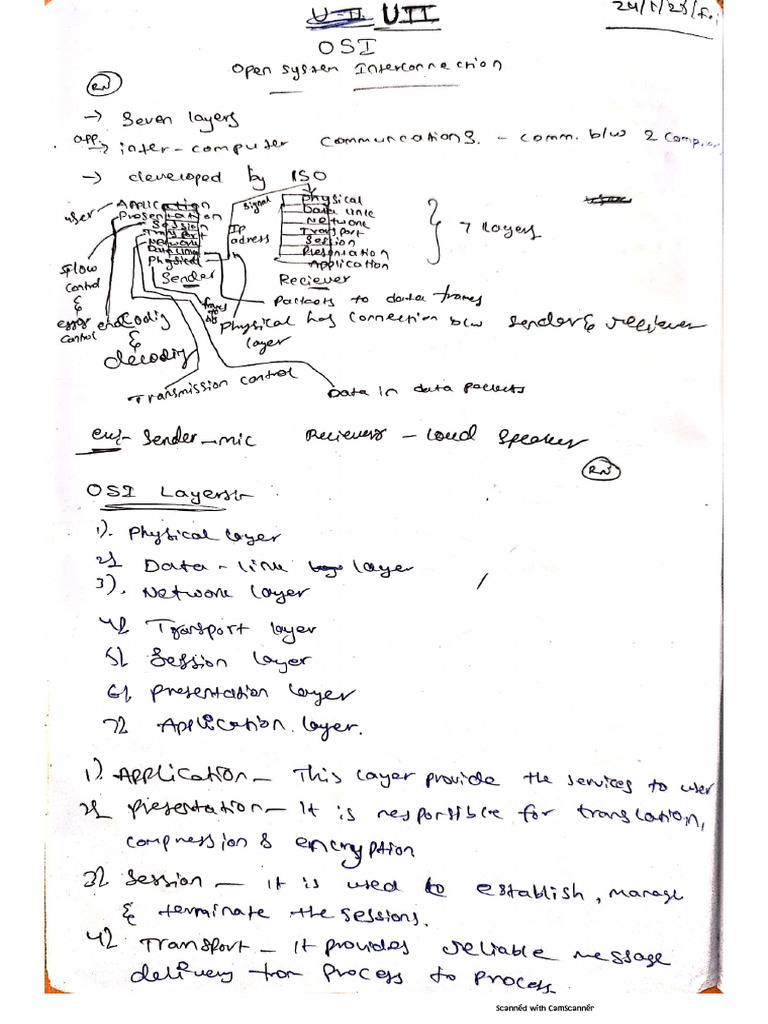 U-II UII
24/1/23/Fri
OSI
Open system Interconnection
RN
→ Seven layers
app.
→ inter-computer communcations. - comm. b/w 2 comp.
→ developed by ISO
user Application
Presentation
Session
Transport
Network
Data link
Physical
Sender
signal
IP adress
Physical
Data link
Network
Transport
Session
Presentation
Application
Reciever
7 layers
flow control & error control
encoding & decoding
frames to bits
Packets to data frames
Physical has connection b/w sender & reciever
layer
Transmission control
Data in data packets
ex:- Sender - mic Recievers - Loud Speaker
RN
OSI Layers:-
1). Physical layer
2) Data-link layer
3). Network layer
4) Transport layer
5) Session layer
6) Presentation layer
7) Application layer.
1) Application - This layer provide the services to user
2) Presentation - It is responsible for translation,
compression & encryption
3) Session - it is used to establish, manage
& terminate the sessions.
4) Transport - It provides reliable message
delivery from process to process
Scanned with CamScanner